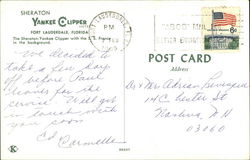 SHERATON
YANKEE CLIPPER HOTEL
FORT LAUDERDALE, FLORIDA
The Sheraton Yankee Clipper with the S. S. France
in the background.
We decided to
take a few days
off before Paul
leaves for the
service. Will get
in touch with
you soon
Ed Carmelle
FT LAUDERDALE
PM
POST CARD
Address
Dr & Mr Adrian Levesque
14 C Lester St
Nashua, N.H.
03060